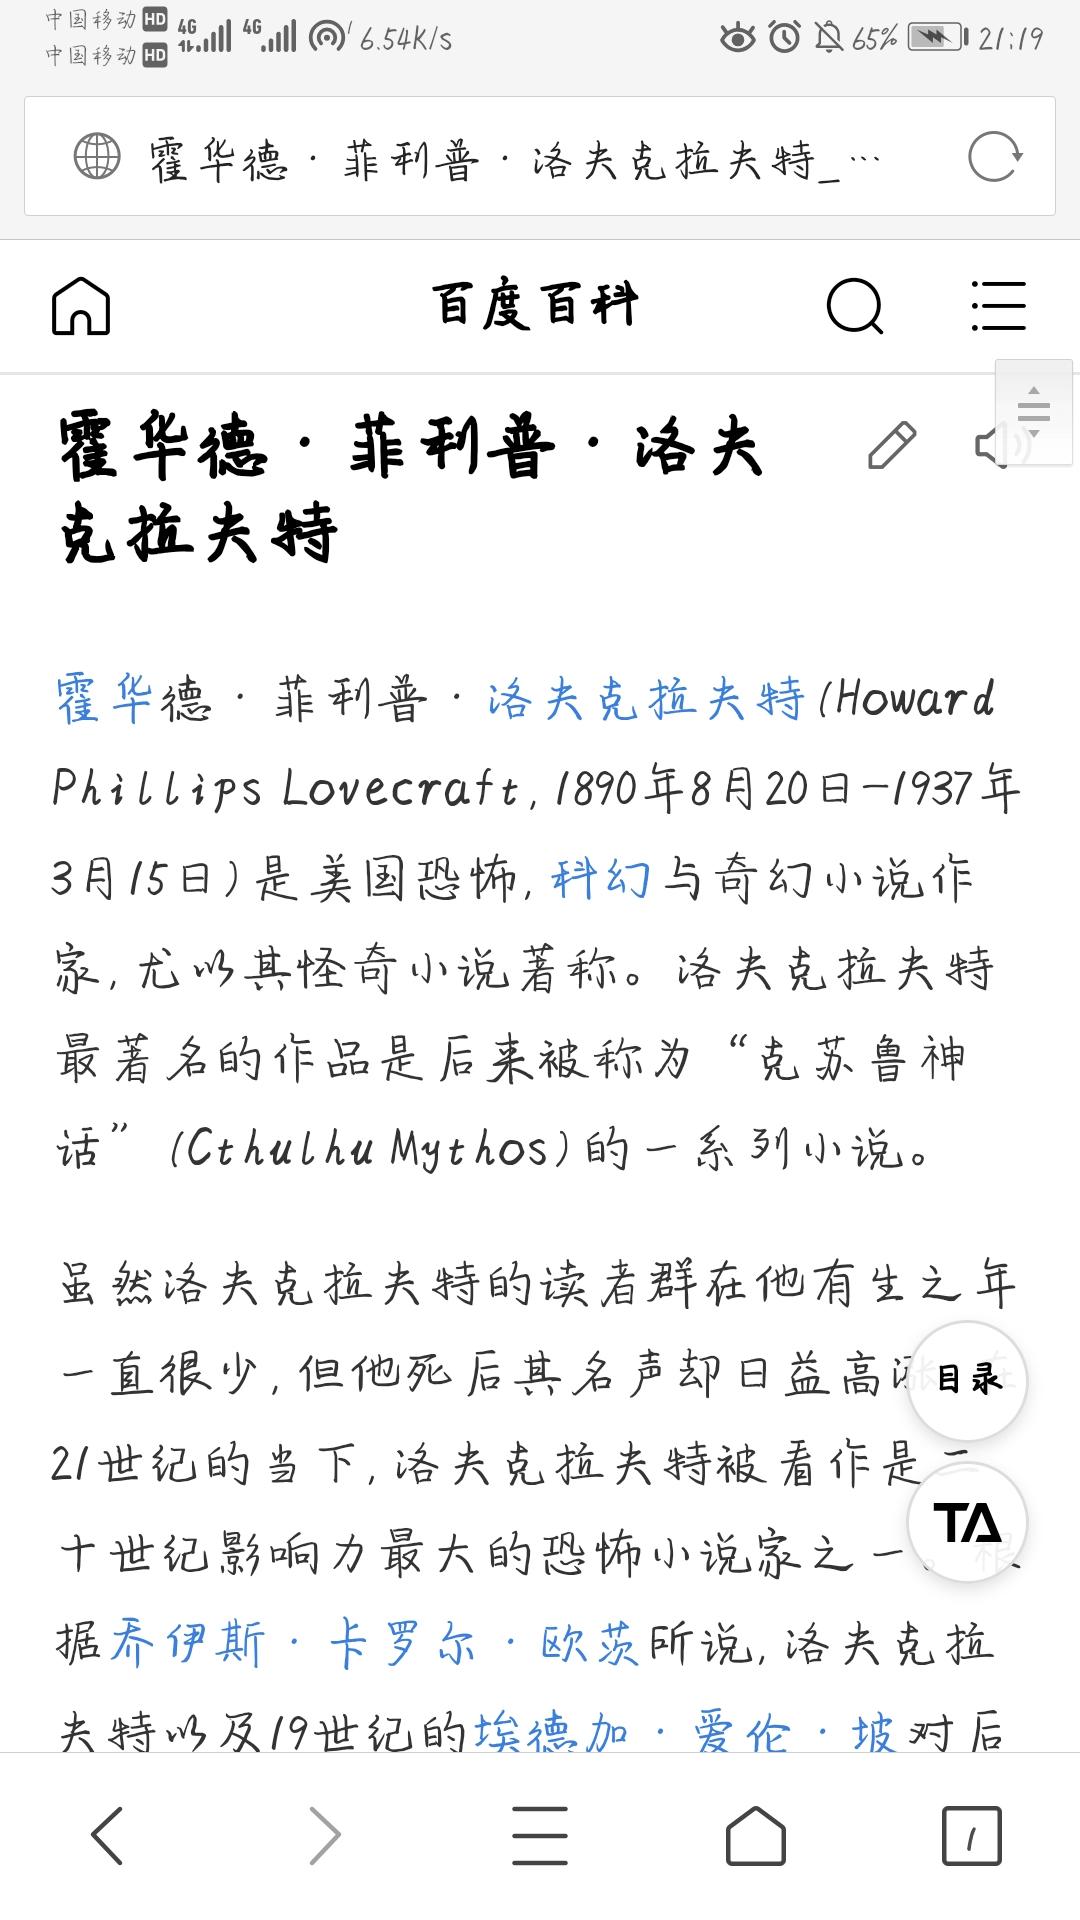 中国移动 HD 4G 4G 6.54K/s 65% 21:19
中国移动 HD
霍华德·菲利普·洛夫克拉夫特_…
百度百科
霍华德·菲利普·洛夫
克拉夫特
霍华德·菲利普·洛夫克拉夫特(Howard
Phillips Lovecraft,1890年8月20日-1937年
3月15日)是美国恐怖,科幻与奇幻小说作
家,尤以其怪奇小说著称。洛夫克拉夫特
最著名的作品是后来被称为“克苏鲁神
话”(Cthulhu Mythos)的一系列小说。
虽然洛夫克拉夫特的读者群在他有生之年
一直很少,但他死后其名声却日益高涨 在
目录
21世纪的当下,洛夫克拉夫特被看作是二
TA
十世纪影响力最大的恐怖小说家之一。根
据乔伊斯·卡罗尔·欧茨所说,洛夫克拉
夫特以及19世纪的埃德加·爱伦·坡对后
1